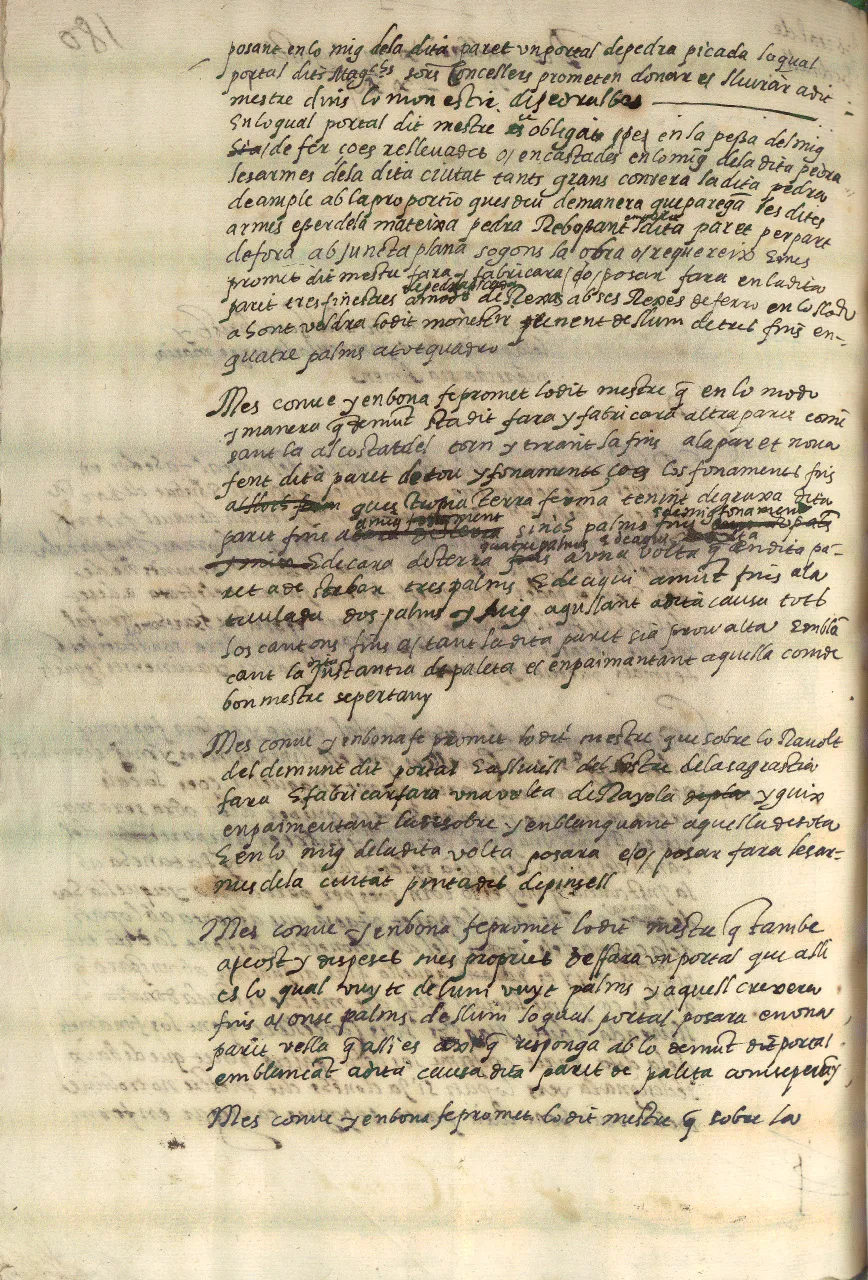 180
posant en lo mig dela dita paret un portal de pedra picada lo qual
portal dits Magchs sors Concellers prometen donar es lliurar a dit
mestre dins lo monestir de pedralbes
En lo qual portal dit mestre es obligat en la pessa del mig
sia de fer çoes rellevades o encastades en lo mig dela dita pedra
les armes dela dita ciutat tants grans com sera la dita pedra
de ample ab la proportio ques deu de manera que parega les dites
armes esser dela mateixa pedra Rebossant dita paret per part
de fora ab juncta plana segons la obra o requereix E mes
promet dit mestre fara y fabricara /o/ posar fara en la dita
paret tres finestres a modo de Rexes ab ses Rexes de ferro en lo lloch
a hont voldra lo dit monestir tenent de llum de tres fins en
quatre palms a tot quadro
Mes conve y en bona fe promet lo dit mestre q en lo modo
y manera q demunt sta dit fara y fabricara altra paret come
sant la al costat del torn y tirant la fins a la paret nova
fent dita paret de tou y fonaments çoes los fonaments fins
ques tropia terra ferma tenint de gruxa dita
a mig fonament
paret fins sinch palms
quatre palms E de aqui
E de cara de terra a una volta q en dita pa-
ret a de star tres palms E de aqui amunt fins a la
teulada dos palms y mig agullant a dita causa tots
los cantons fins a tant la dita paret sia prou alta Emblan
cant la de paleta et enpaimantant aquella com de
bon mestre se pertany
Mes conve y en bona fe promet lo dit mestre que sobre lo Ravolt
del demunt dit portal del sostre dela sagrastia
fara E fabricar fara una volta de Rayola y guix
enpaimentant la desobre y enblanquant aquella de sota
E en lo mig dela dita volta posara e/o/ posar fara les ar-
mes dela ciutat pintades de pinsell
Mes conve y en bona fe promet lo dit mestre q tambe
a cost y despeses mes propries desfara un portal que alli
es lo qual vuy te de lum vuyt palms y aquell crexera
fins a onse palms de llum lo qual portal posara en una
paret vella q alli es q responga ab lo demunt dit portal
emblancant a dita causa dita paret de paleta com se pertany
Mes conve y en bona fe promet lo dit mestre q sobre la